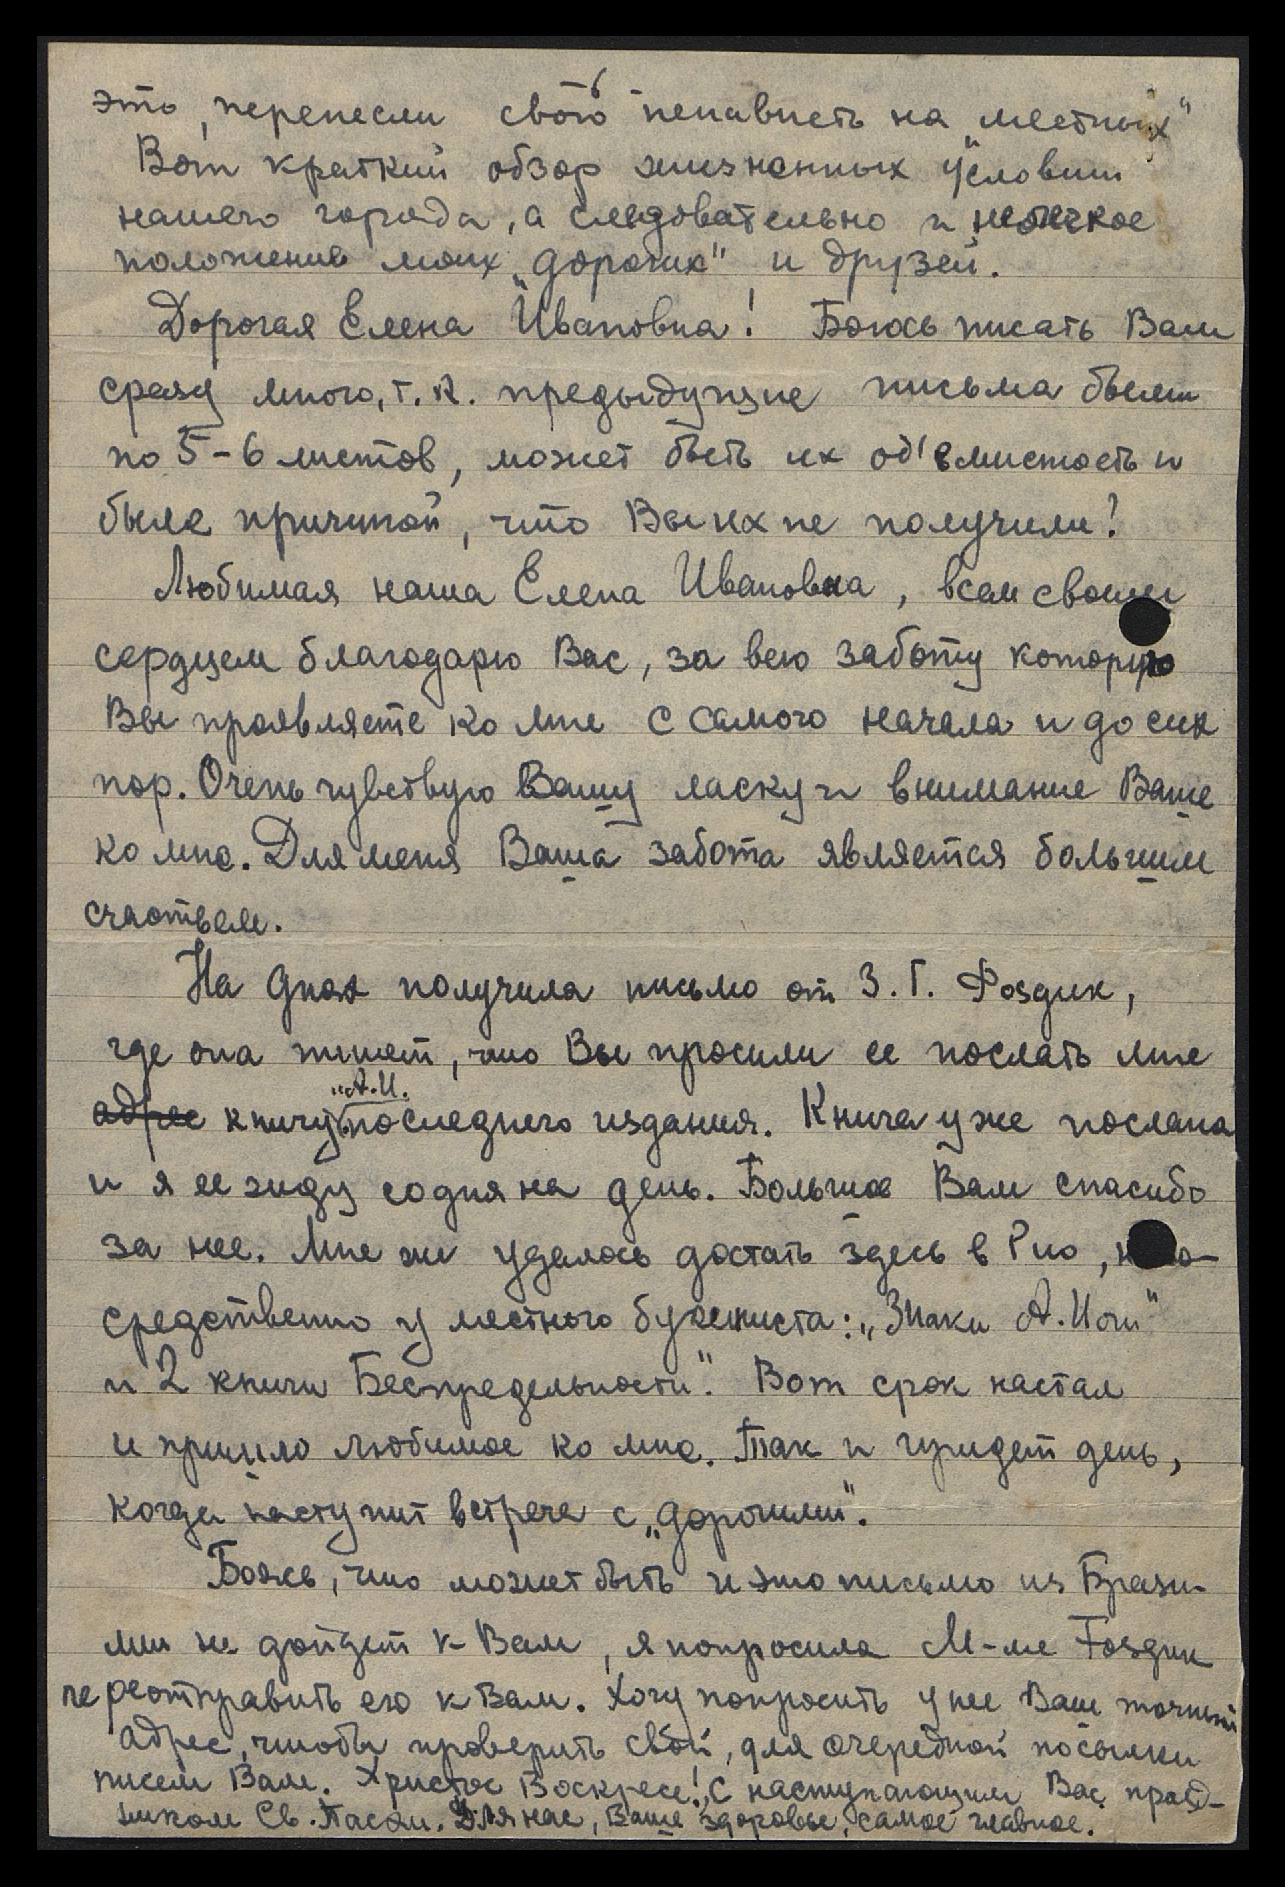 это, перенесли свою ненависть на „местных"
Вот краткий обзор жизненных условий
нашего города, а следовательно и нелегкое
положение моих „дорогих" и друзей.
Дорогая Елена Ивановна! Боюсь писать Вам
сразу много, т.к. предыдущие письма были
по 5-6 листов, может быть их об'емистость и
была причиной, что Вы их не получили!
Любимая наша Елена Ивановна, всем своим
сердцем благодарю Вас, за всю заботу которую
Вы проявляете ко мне с самого начала и до сих
пор. Очень чувствую Вашу ласку и внимание Ваше
ко мне. Для меня Ваша забота является большим
счастьем.
На днях получила письмо от З. Г. Фоздик,
где она пишет, что Вы просили ее послать мне
адрес книгу „А.И. последнего издания. Книга уже послана
и я ее жду со дня на день. Большое Вам спасибо
за нее. Мне же удалось достать здесь в Рио,
средственно у местного букиниста: „Знаки А. Иоги"
и 2 книги Беспредельности". Вот срок настал
и пришло любимое ко мне. Так и придет день,
когда наступит встреча с „дорогими".
Боюсь, что может быть и это письмо из Брази-
лии не дойдет к Вам, я попросила М-ме Fоздик
переотправить его к Вам. Хочу попросить у нее Ваш точный
адрес, чтобы проверить свой, для очередной посылки
писем Вам. Христос Воскресе! С наступающим Вас празд-
ником Св. Пасхи. Для нас, Ваше здоровье, самое главное.